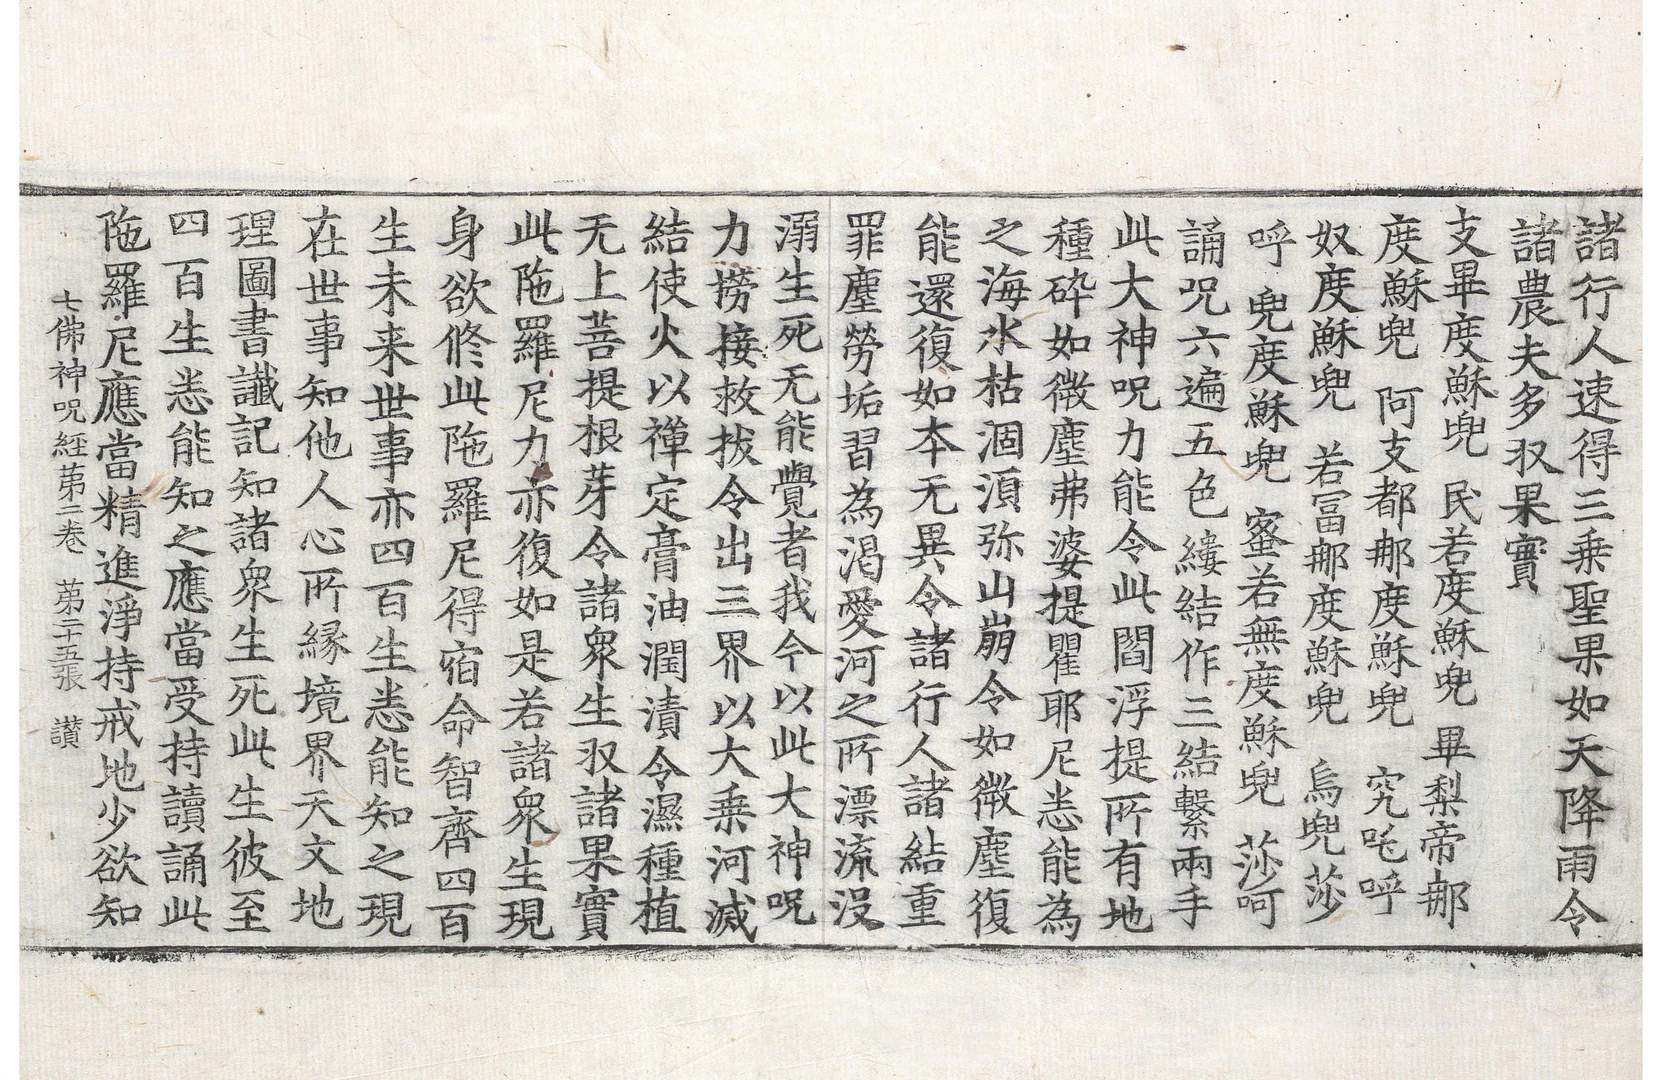 諸行人速得三乗聖果如天降雨令
諸農夫多収果實
支畢度蘇兜 民若度蘇兜 畢梨帝𨚗
度蘇兜 阿支都𨚗度蘇兜 究吒呼
奴度蘇兜 若冨𨚗度蘇兜 烏兜莎
呼 兜度蘇兜 蜜若無度蘇兜 莎呵
誦呪六遍五色縷結作三結繫兩手
此大神呪力能令此閻浮提所有地
種碎如微塵弗婆提瞿耶尼悉能為
之海水枯涸湏弥山崩令如微塵復
能還復如本无異令諸行人諸結重
罪塵勞垢習為渇愛河之所漂流没
溺生死无能覺者我今以此大神呪
力撈接救拔令出三界以大乗河滅
結使火以禪定膏油潤漬令濕種植
无上菩提根芽令諸衆生収諸果實
此陁羅尼力亦復如是若諸衆生現
身欲修此陁羅尼得宿命智齊四百
生未来世事亦四百生悉能知之現
在世事知他人心所縁境界天文地
理圖書讖記知諸衆生死此生彼至
四百生悉能知之應當受持讀誦此
陁羅尼應當精進淨持戒地少欲知
七佛神呪經苐二卷 苐二十五張 讃